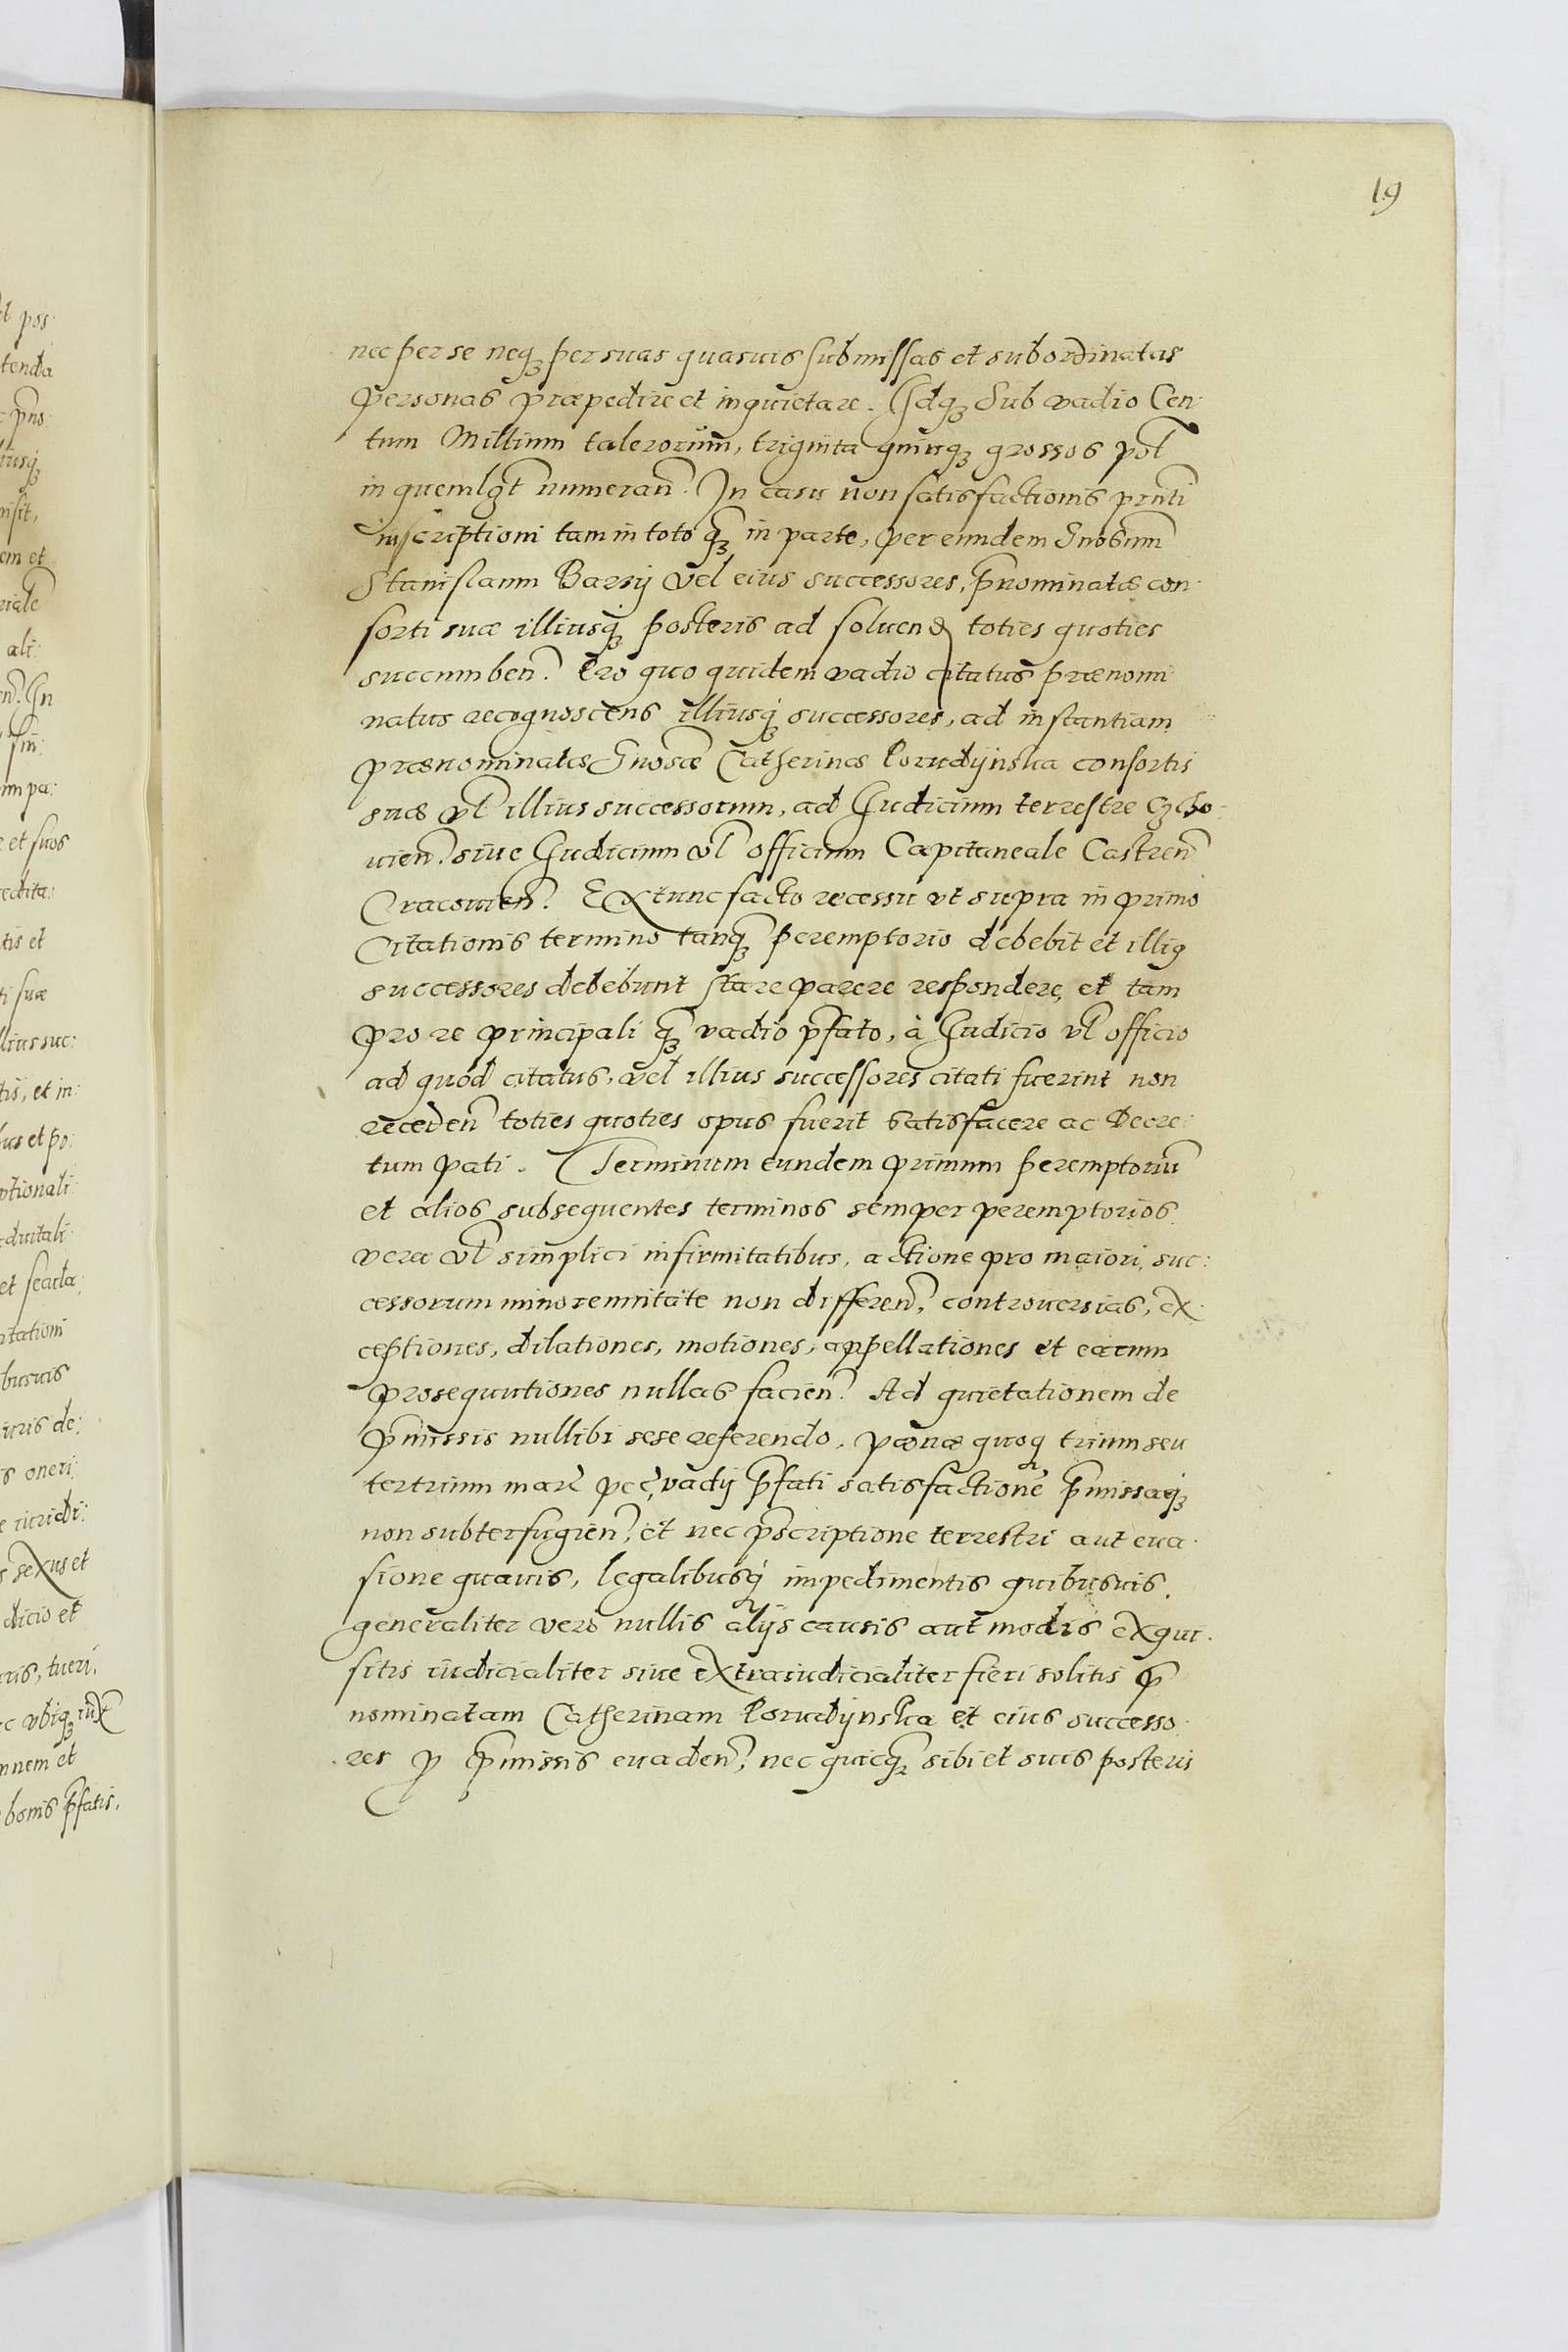 19
nec per se neq₃ per suas quasuis submissas et subordinatas
personas præpedire et inquietare. Idq₃ sub vadio Cen:
tum Millium talerorum, triginta quinq₃ grossos pol
in quemlgt numeran̄. In casu non satisfactionis pn̄ti
inscriptioni tam in toto q₃ in parte, per eundem Gnosum
Stanislaum Barzij vel eius successores, p̄nominatæ con:
sorti suæ illiusq₃ posteris ad soluend toties quoties
succumben̄. Pro quo quidem vadio citatus prænomi
natus recognoscens illiusq₃ successores, ad instantiam
prænominatæ Gnosæ Catherinæ Porudijnska consortis
suæ vl̄ illius successorum, ad Iudicium terrestre Czcho:
uien̄. siue Iudicium vl̄ officium Capitaneale Castren̄
Cracouien̄. Ex tunc facto recessu vt supra in primo
Citationis termino tanq₃ peremptorio debebit et illig
successores debebunt stare parere respondere, et tam
pro re principali q₃ vadio p̄fato, à Iudicio vl̄ officio
ad quod citatus, vel illius successores citati fuerint non
receden̄ toties quoties opus fuerit satisfacere ac Decre:
tum pati. Terminum eundem primum peremptoriū
et alios subsequentes terminos semper peremptorios
vera vl̄ simplici infirmitatibus, actione pro maiori, suc:
cessorum minorennitate non differen̄, controuersias, ex
ceptiones, dilationes, motiones, appellationes et earum
prosequutiones nullas facien̄. Ad quietationem de
p̄missis nullibi sese referendo, pœnæ quoq₃ trium seu
tertrium marc pec, vadij p̄fati satisfactionē p̄missaq₃
non subterfugien̄, et nec p̄scriptione terrestri aut eua:
sione quauis, legalibusq₃ impedimentis quibusuis,
generaliter vero nullis alijs causis aut modis exqui:
sitis iudicialiter siue extraiudicialiter fieri solitis p̄
nominatam Catherinam Porudijnska et eius successo
res p p̄missis euaden̄, nec quicq₃ sibi et suis posteris